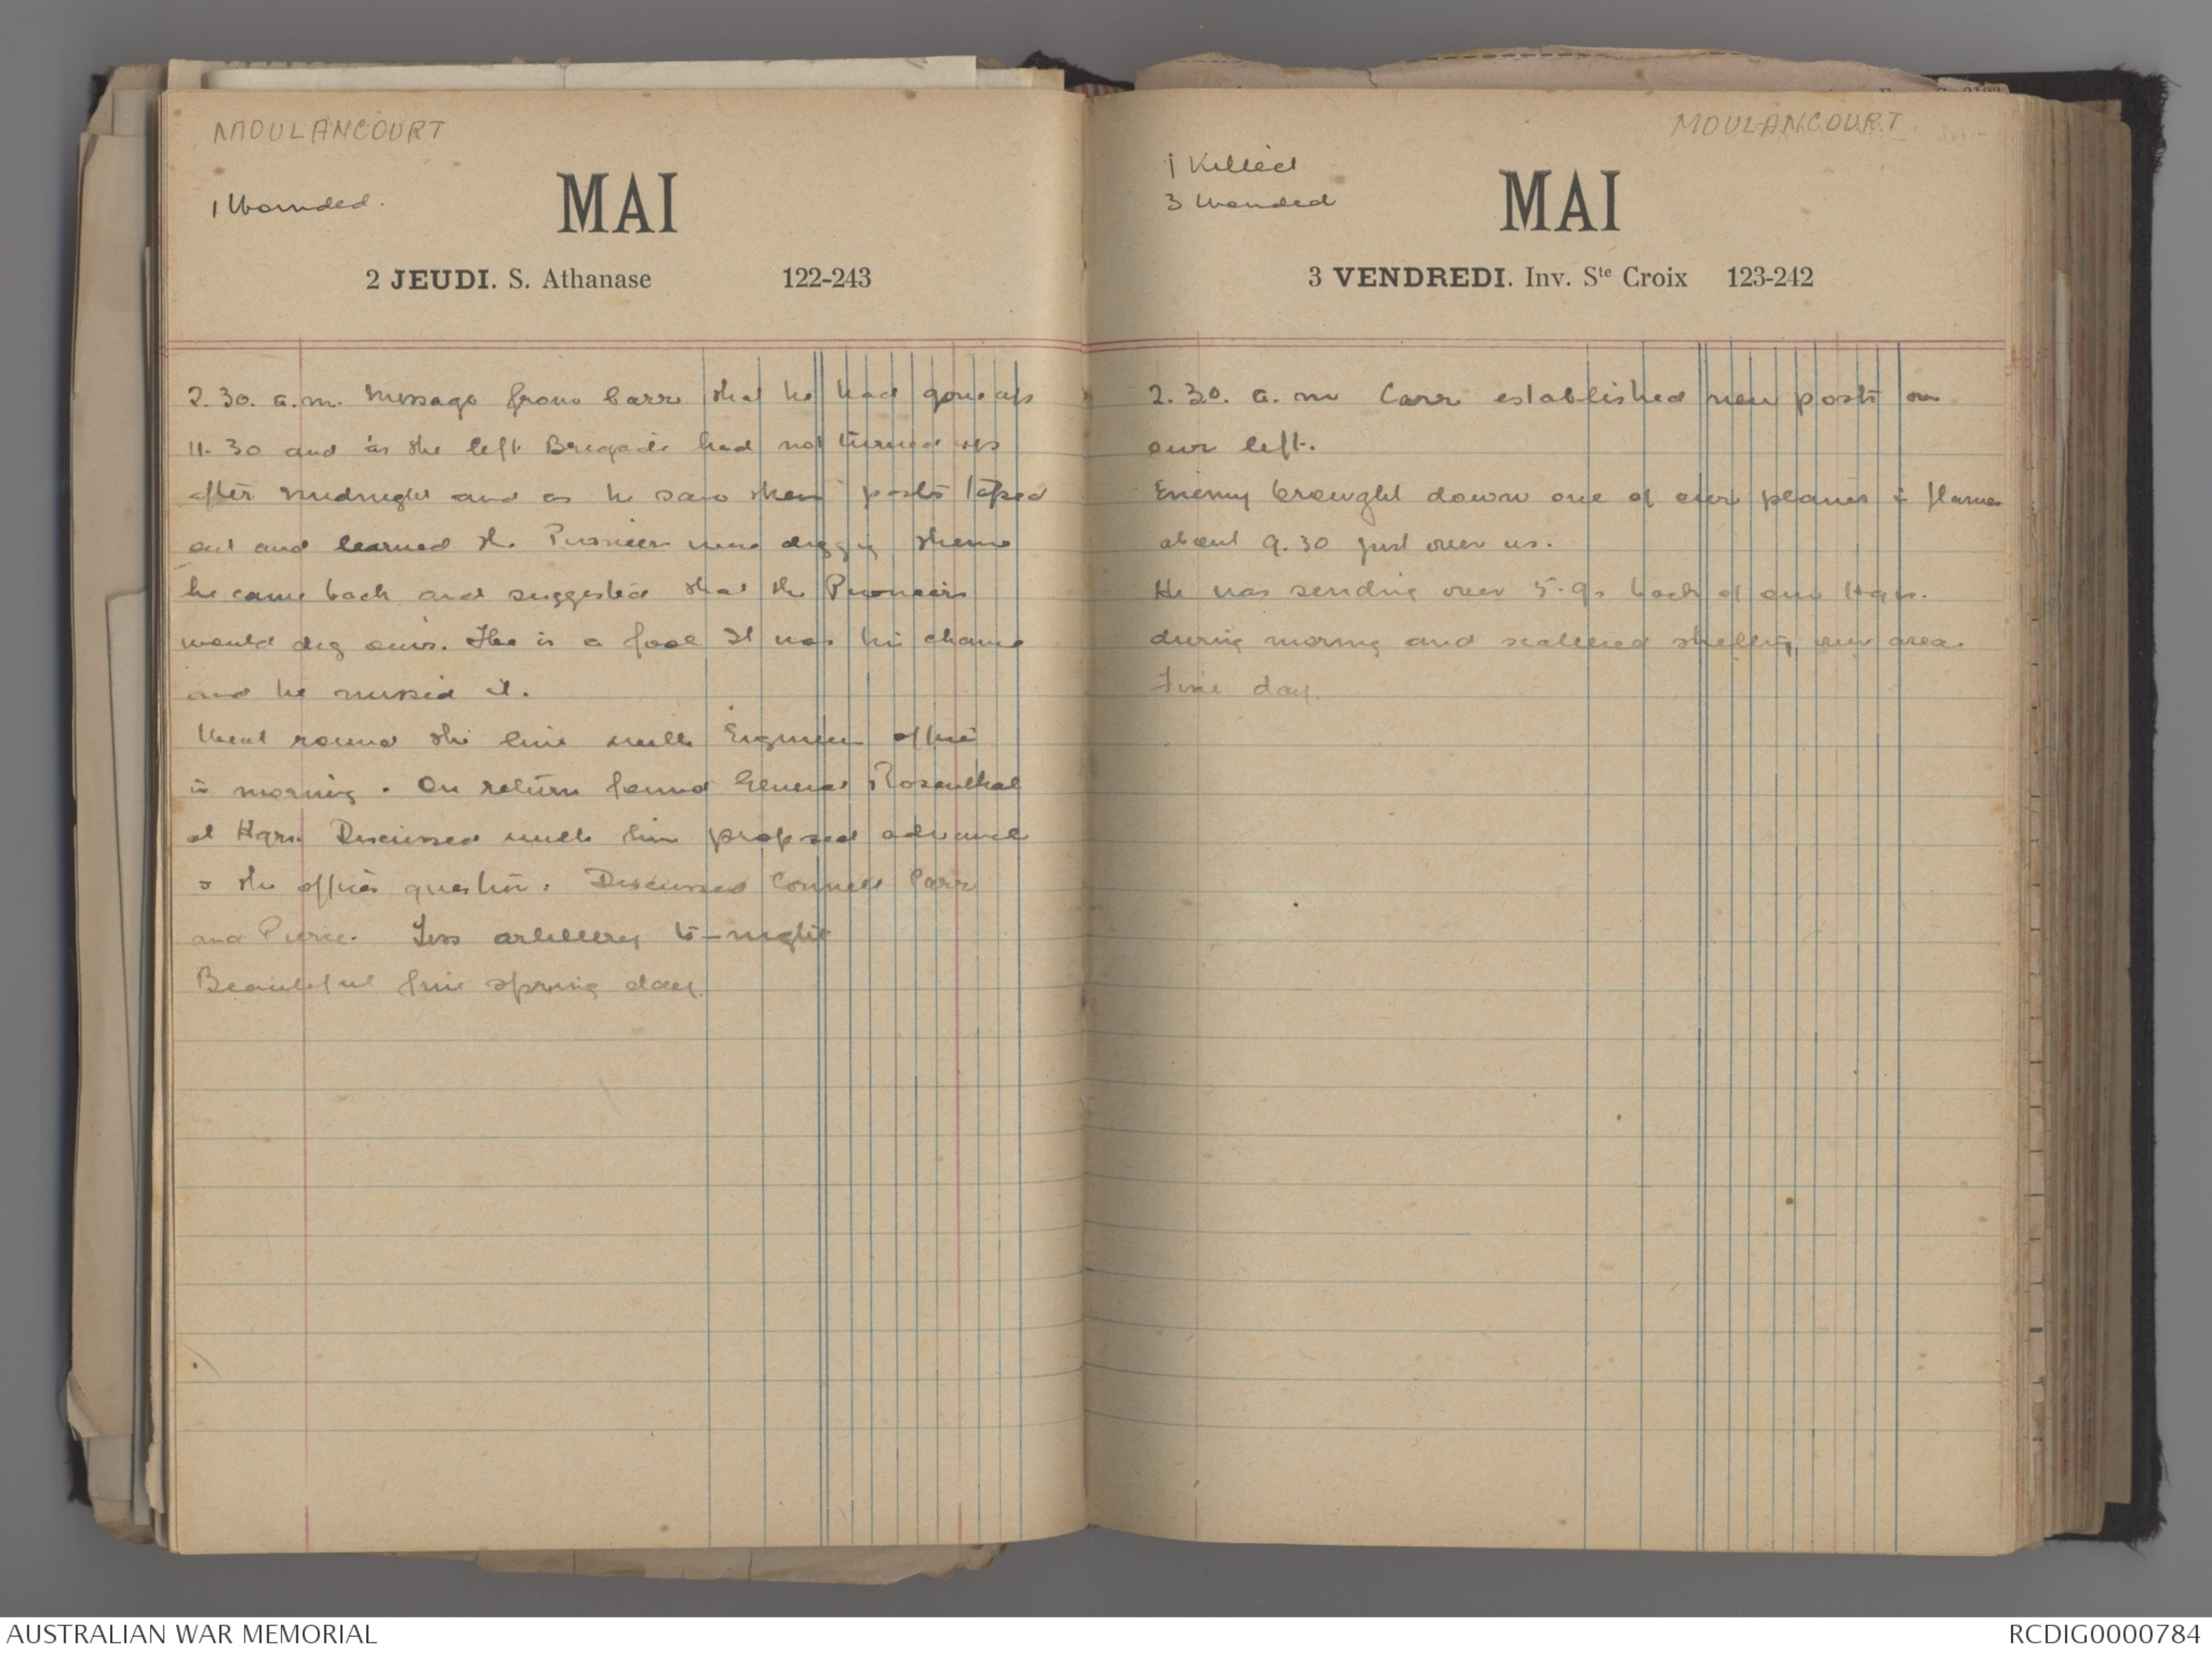 MOULANCOURT
1 Wounded.
MAI
2 JEUDI. S. Athanase 122-243
2.30. a.m. Message from Carr that he had gone up
11.30 and as the left Brigade had not turned up
after midnight and as he saw their posts taped
out and learned the Pioneers were digging them
he came back and suggested that the Pioneers
would dig ours. He is a fool It was his chance
and he missed it.
Went round the line with Engineer officer
in morning. On return found General Rosenthal
at Hqrs. Discussed with him proposed advance
& the officer question: Discussed Connell Carr
and Pirie. Less artillery to-night
Beautiful fine spring day.
MOULANCOURT
1 Killed
3 Wounded
MAI
3 VENDREDI. Inv. Ste Croix 123-242
2.30. a.m Carr established new posts on
our left.
Enemy brought down one of our planes in flames
about 9.30 just over us.
He was sending over 5.9s back of our Hqrs.
during morning and scattered shelling over area.
Fine day.
AUSTRALIAN WAR MEMORIAL
RCDIG0000784